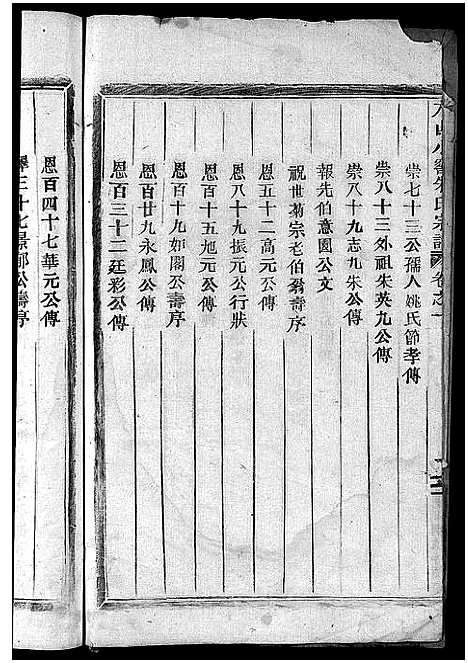 崇七十三公孺人姚氏節孝傳
崇八十三外祖朱英九公傳
崇八十九志九朱公傳
報先伯意園公文
祝世菊宗老伯翁壽序
恩五十二高元公傳
恩八十九振元公行狀
恩百十五旭元公傳
恩百十九如閣公壽序
恩百廿九永鳳公傳
恩百三十二廷彩公傳
恩百四十七華元公傳
三十七景郁公壽序
氏宗譜 卷之一